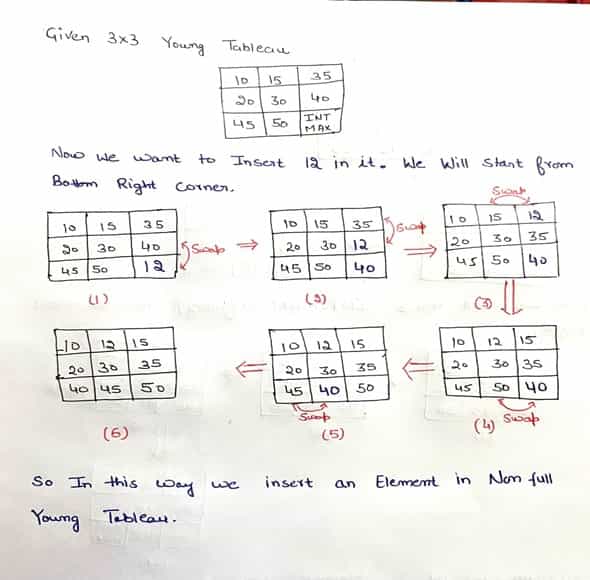 Given 3x3 Young Tableau
10 15 35
20 30 40
45 50 INT MAX
Now we want to Insert 12 in it. We Will start from
Bottom Right corner.
10 15 35
20 30 40
45 50 12
Swap
(1)
10 15 35
20 30 12
45 50 40
Swap
(2)
Swap
10 15 12
20 30 35
45 50 40
(3)
10 12 15
20 30 35
40 45 50
(6)
10 12 15
20 30 35
45 40 50
Swap
(5)
10 12 15
20 30 35
45 50 40
Swap
(4)
So In this way we insert an Element in Non full
Young Tableau.